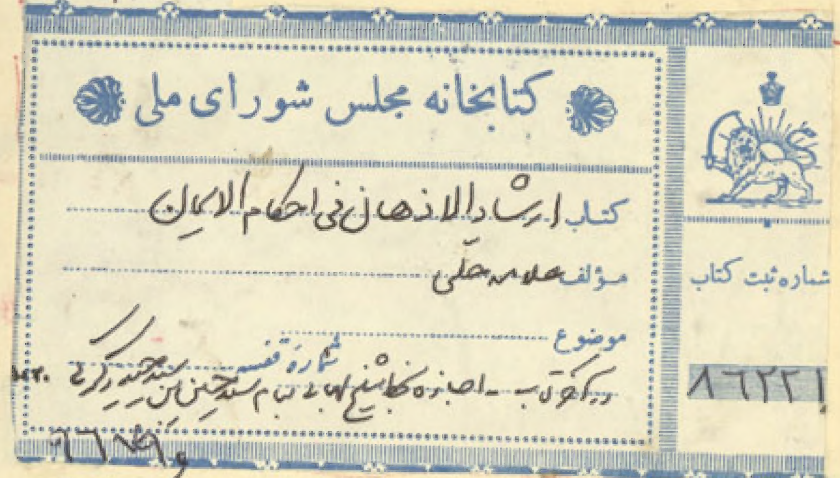 کتابخانه مجلس شورای ملی
کتاب ارشاد الاذهان فی احکام الایمان
مؤلف علامه حلی
موضوع
شمارهٔ قفسه
در آخر کتاب - اجازه بخط شیخ بهائی بنام سید حسین بن سید حیدر کرکی
شماره ثبت کتاب
۸۶۲۲۱